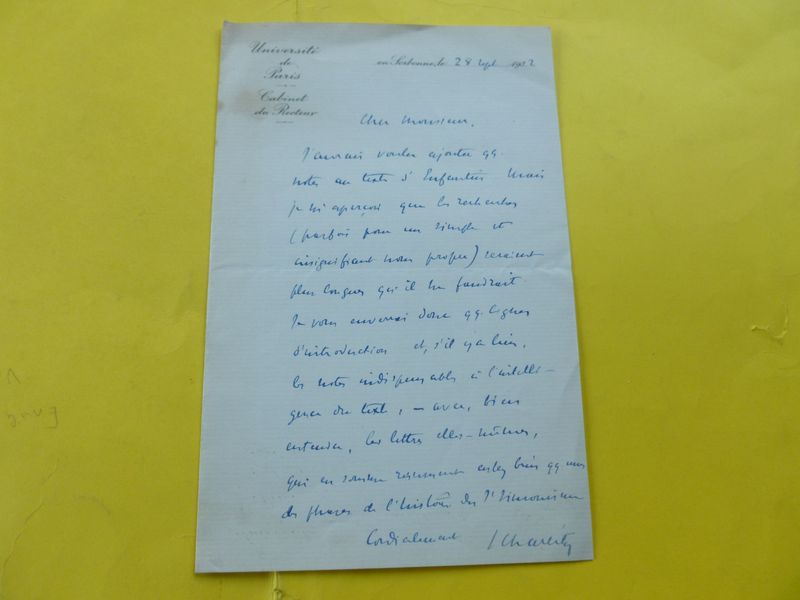 Université
de
Paris
Cabinet
du Recteur
en Sorbonne, le 28 sept 1932
Cher Monsieur,
J'aurais voulu ajouter qq.
notes au texte d'Enfantin mais
je m'aperçois que les recherches
(parfois pour un simple et
insignifiant nom propre) seraient
plus longues qu'il ne faudrait.
Je vous enverrai donc qq. lignes
d'introduction et, s'il y a lieu,
les notes indispensables à l'intelli-
gence du texte, – avec, bien
entendu, les lettres elles-mêmes,
qui en somme résument assez bien qq unes
des phases de l'histoire du St Simonisme
Cordialement S Charléty